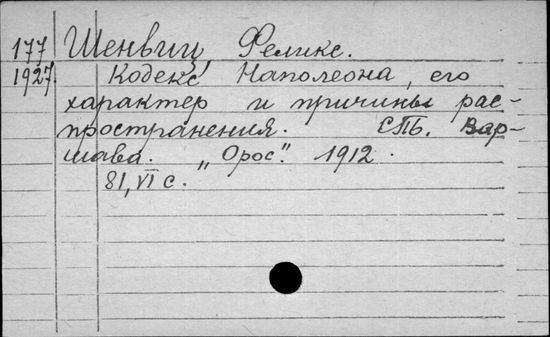 177 Шенвиц, Феликс.
1927 Кодекс Наполеона, его
характер и причины рас-
пространения. СПБ. Вар-
шава. „Орос". 1912.
81, VI с.